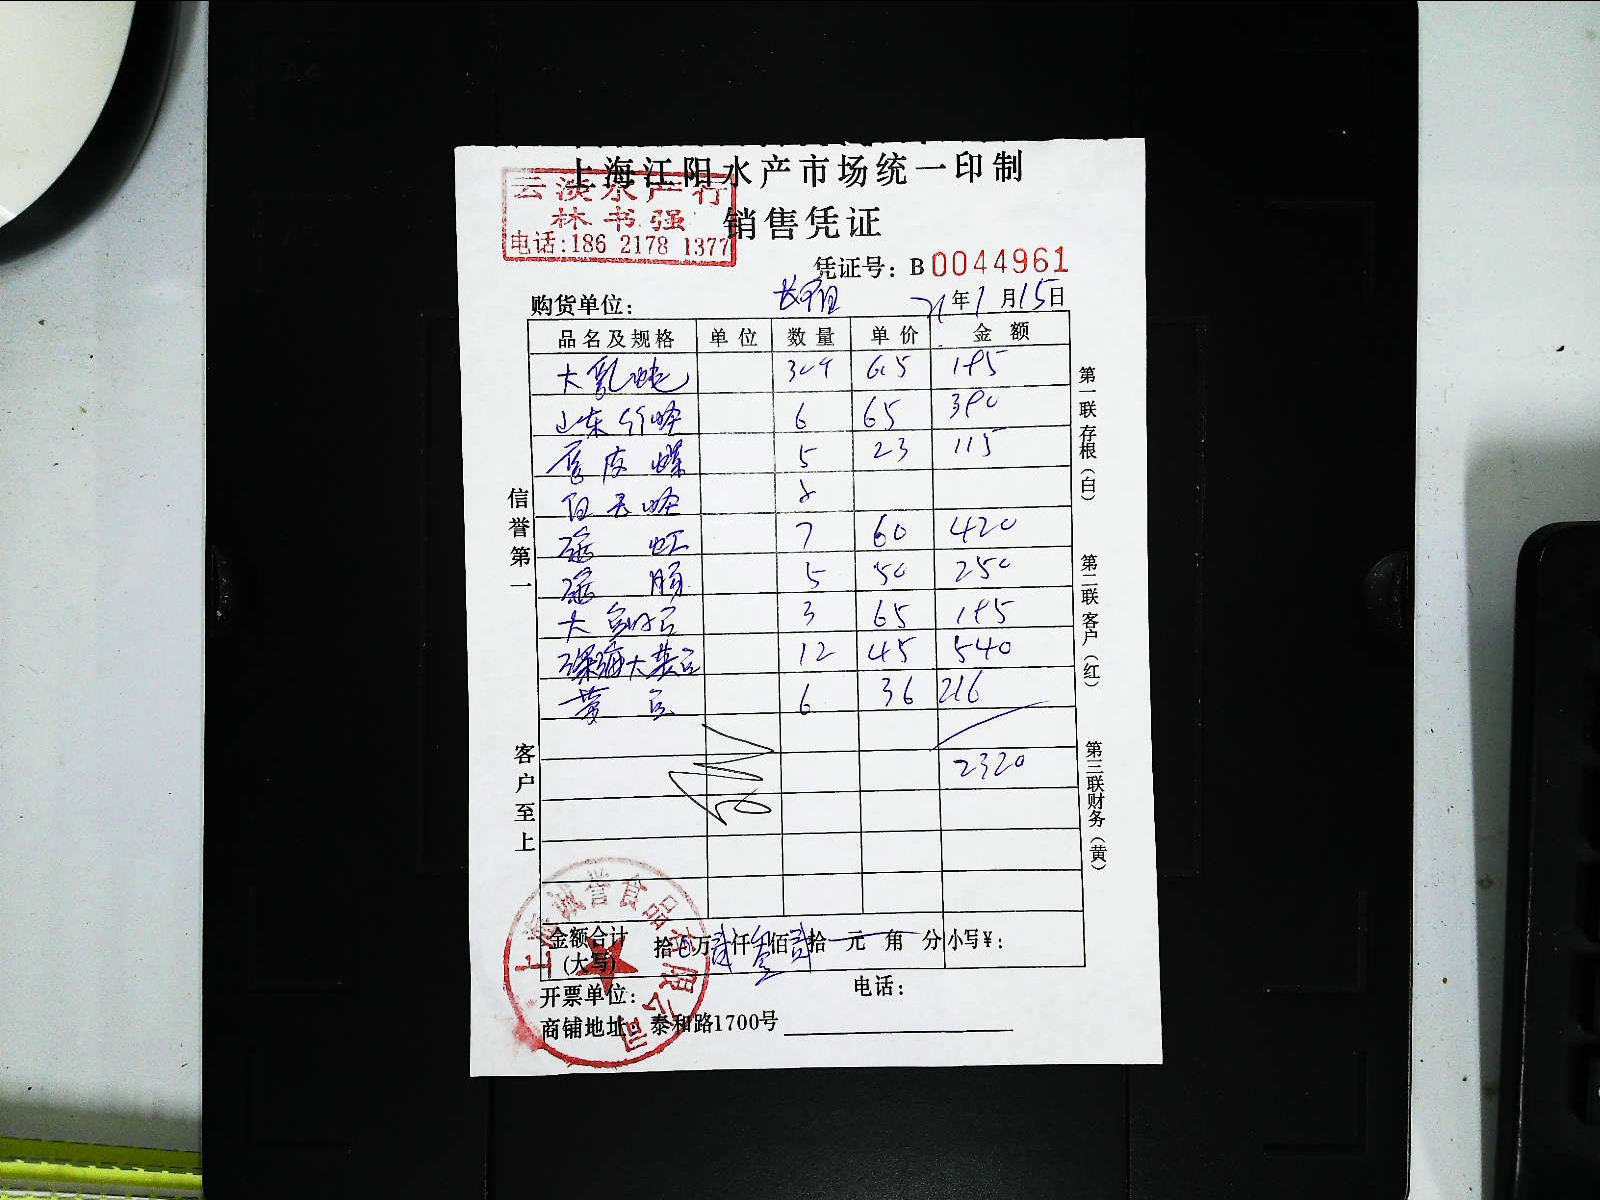 上海江阳水产市场统一印制
云淡水产行
林书强
电话:186 2178 1377
销售凭证
凭证号: B 0044961
购货单位:
21年1月15日
品名及规格 单位 数量 单价 金额
大 65 195
山东 6 65 390
皮 5 23 115
7 60 420
5 50 250
大 3 65 195
深海大黄 12 45 540
黄 6 36 216
2320
信誉第一
客户至上
第一联 存根(白)
第二联 客户(红)
第三联 财务(黄)
上海诚誉食品有限公司
金额合计(大写) 拾万贰仟叁佰贰拾元角分 小写¥:
开票单位: 电话:
商铺地址: 泰和路1700号